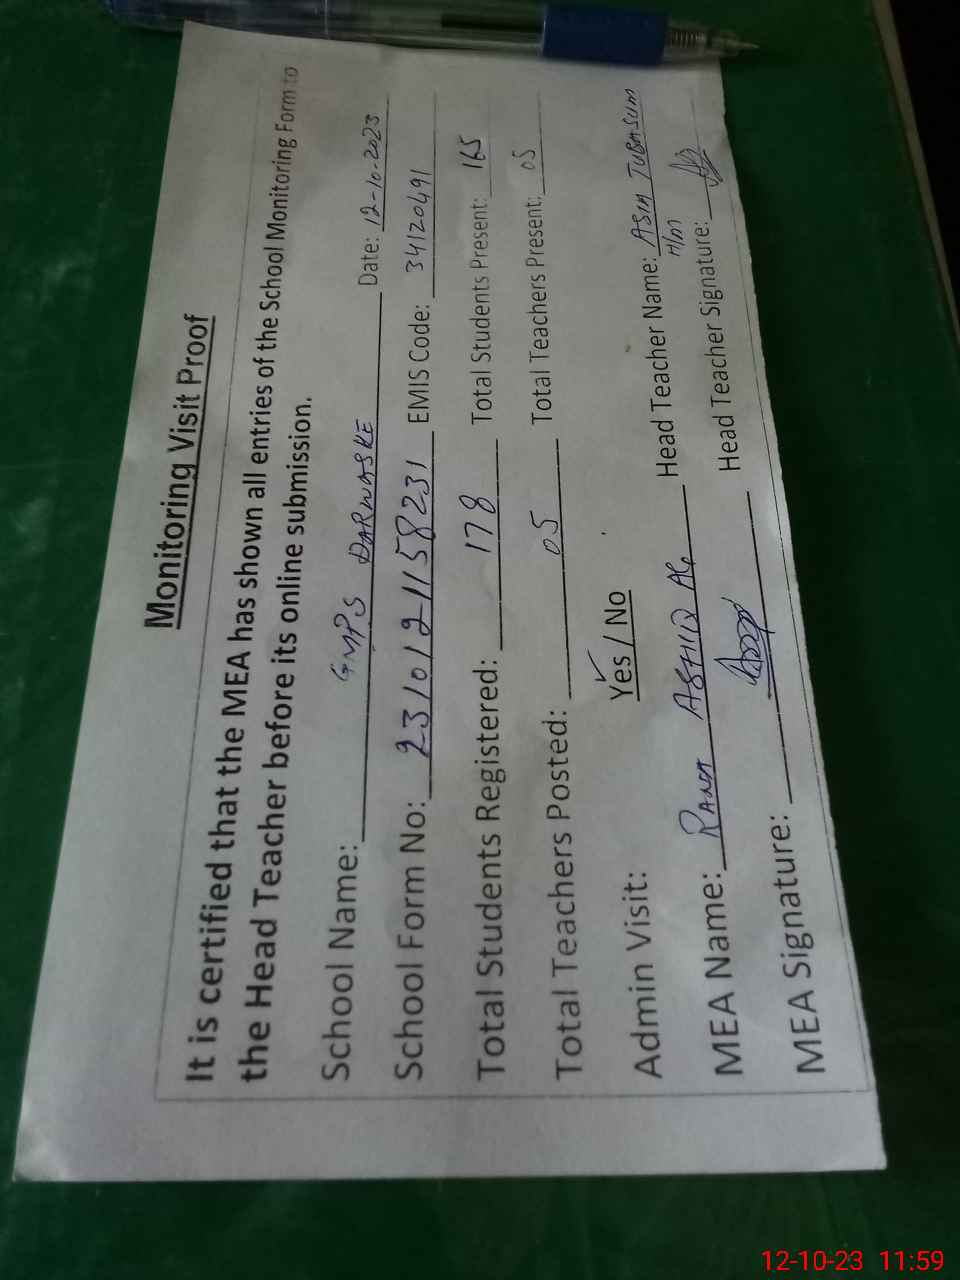 Monitoring Visit Proof
It is certified that the MEA has shown all entries of the School Monitoring Form to
the Head Teacher before its online submission.
School Name: GMPS DARWASKE Date: 12-10-2023
School Form No: 2310121158231 EMIS Code: 34120491
Total Students Registered: 178 Total Students Present: 165
Total Teachers Posted: 05 Total Teachers Present: 05
Admin Visit: Yes / No
MEA Name: RANA ASHIQ Head Teacher Name: ASIM TUBASUM
H/M
MEA Signature: Head Teacher Signature:
12-10-23 11:59